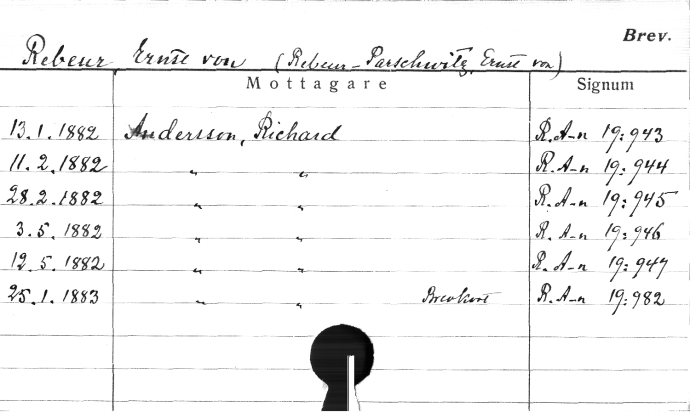 Brev.
Rebeur Ernst von (Rebeur-Parschwitz, Ernst von)
Mottagare Signum
13.1.1882 Andersson, Richard R. A-n 19:943
11.2.1882 " " R. A-n 19:944
28.2.1882 " " R. A-n 19:945
3.5.1882 " " R. A-n 19:946
12.5.1882 " " R. A-n 19:947
25.1.1883 " " Brevkort R. A-n 19:982